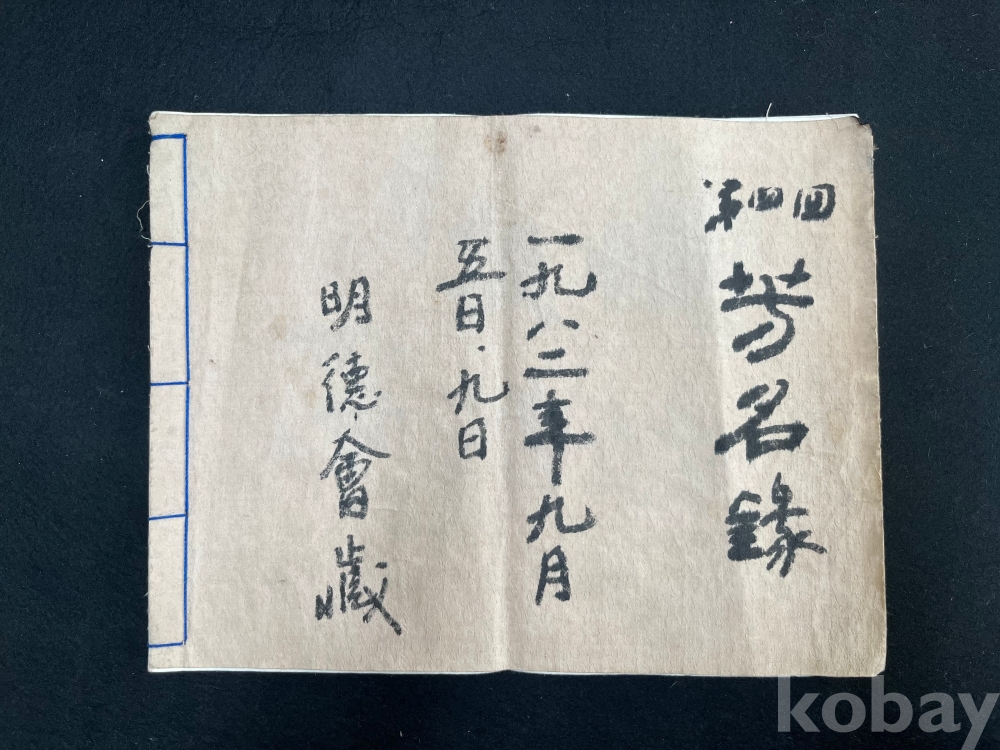 第四回
芳名錄
一九八二年九月
五日·九日
明德會藏
kobay